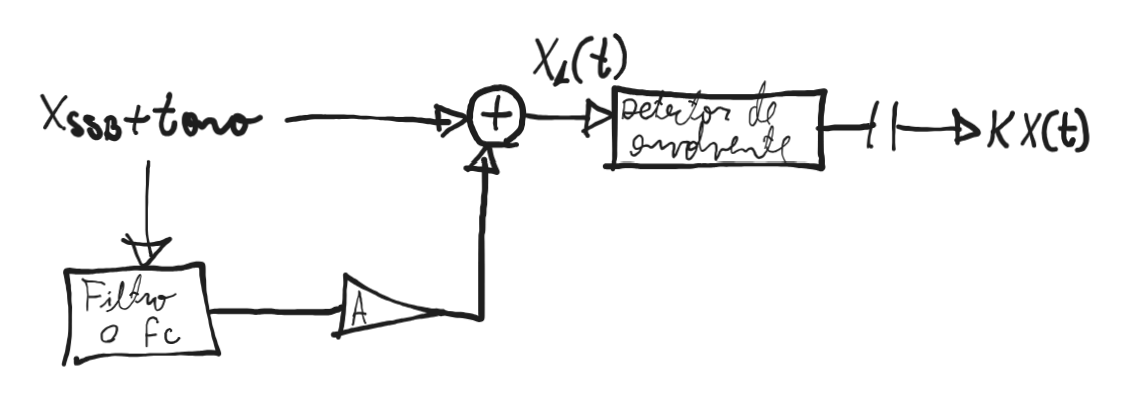 X₁(t)
X_SSB+tono
+
Detector de
envolvente
K X(t)
Filtro
a fc
A